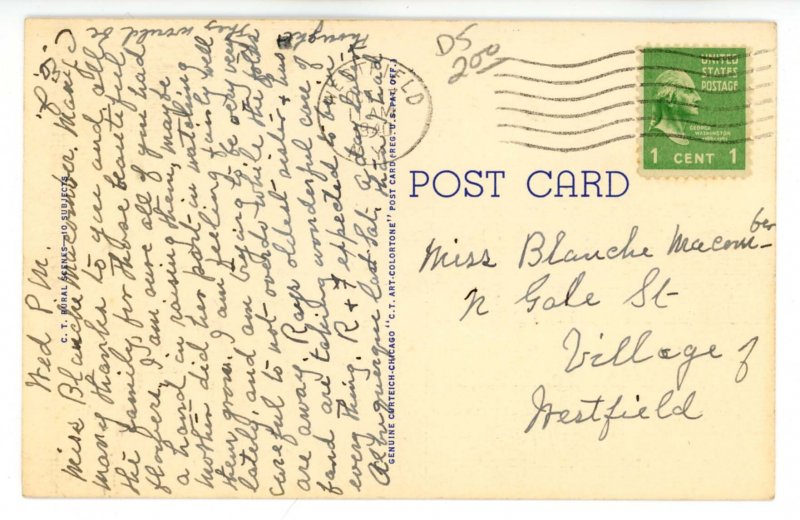 Wed P.M.
Miss Blanche Macomber. Many
many thanks to you and all
the family for those beautiful
flowers. I am sure all of you had
a hand in raising them, maybe
mother did her part in watching
them grow. I am feeling fairly well
lately, and am trying to be very very
careful to not overdo while the folks
are away. Rays oldest sister + hus
band are taking wonderful care of
every thing. R + F expected to be in
Albuquerque last Sat.
thought
this would be
C. T. RURAL SCENES—10 SUBJECTS
GENUINE CURTEICH-CHICAGO "C. T. ART-COLORTONE" POST CARD (REG. U. S. PAT. OFF.)
DS
200
UNITED
STATES
POSTAGE
GEORGE
WASHINGTON
1 CENT 1
POST CARD
Miss Blanche Macomber
N Gale St
Village of
Westfield